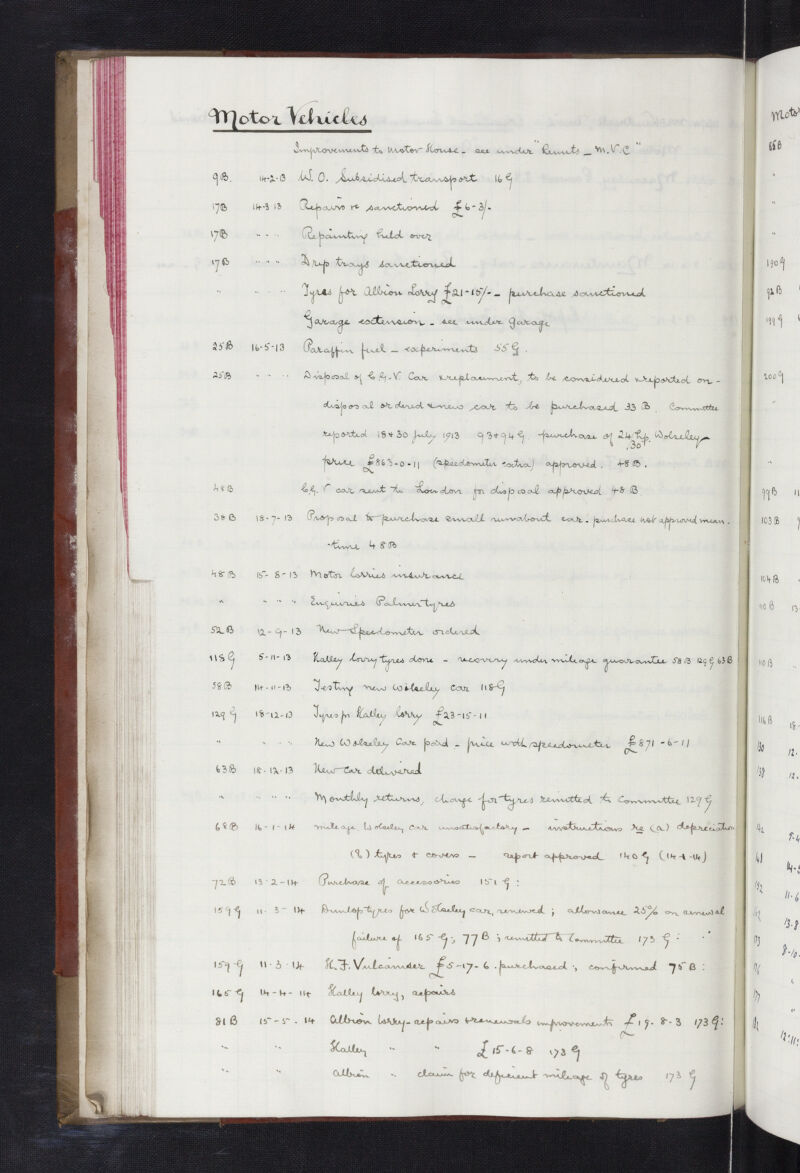 Motor Vehicles
Improvements to Motor House - see under "Remits - M.V.C"
9B 14-2-13 W.O. Subsidised transport 16 G
17B 14-3-13 Repairs re sanctioned £6-3/-
17B " " " Repainting held over
17B " " " Drip trays sanctioned
" " " " Tyres for Albion Lorry £21-15/- - purchase sanctioned
Garage extension - see under Garage
25B 16-5-13 Paraffin fuel - experiments 55 G.
25B " " " Disposal of C.G.V. Car & replacement, to be considered & reported on -
disposal ordered & new car to be purchased 33 B. Committee
reported 18 & 30 July 1913 93 & 94 G. purchase of 24/30 h.p. Wolseley -
price £863-0-11 (speedometer extra) approved. 48 B.
48B C.G.V car sent to London for disposal approved 48 B
38B 18-7-13 Proposal to purchase small runabout car - purchase not approved mean-
-time 48B
48B 15-8-13 Motor lorries insurance
" " " " Enquiries Palmer tyres
52B 12-9-13 New Speedometer ordered
118G 5-11-13 Halley lorry tyres done - recovery under mileage guarantee 58B 129G 63B
58B 14-11-13 Testing new Wolseley car 118 G
129 G 18-12-13 Tyres for Halley lorry £23-15-11
" " " " New Wolseley Car paid - price with speedometer £871-6-11
63B 18.12.13 New car delivered
" " " " Monthly returns, charge for tyres remitted to Committee 129 G
68B 16-1-14 mileage Wolseley car unsatisfactory - instructions re (a) depreciation
(b) tyres & covers - report approved 140 G (14-1-14)
72B 13-2-14 Purchase of accessories 151 G:
159 G 11-3-14 Dunlop tyres for Wolseley car, renewed; allowance 25% on renewal
failure of 165 G; 77B; remitted to Committee 173 G:
159 G 11-3-14 H.F. Vulcaniser £5-17-6 purchased; confirmed 75 B:
165 G 14-4-14 Halley lorry, repairs
81B 15-5-14 Albion lorry - repairs & renewals improvements £19-8-3 173 G:
" " Halley " " £15-6-8 173 G
" " Albion " claim for deficient mileage of tyres 173 G
Motor
85B
"
"
"
190 G
92B
199 G
200 G
"
"
99B 11
103B
104B
110B 13
110B
116B 18-
130 12.
138 12.